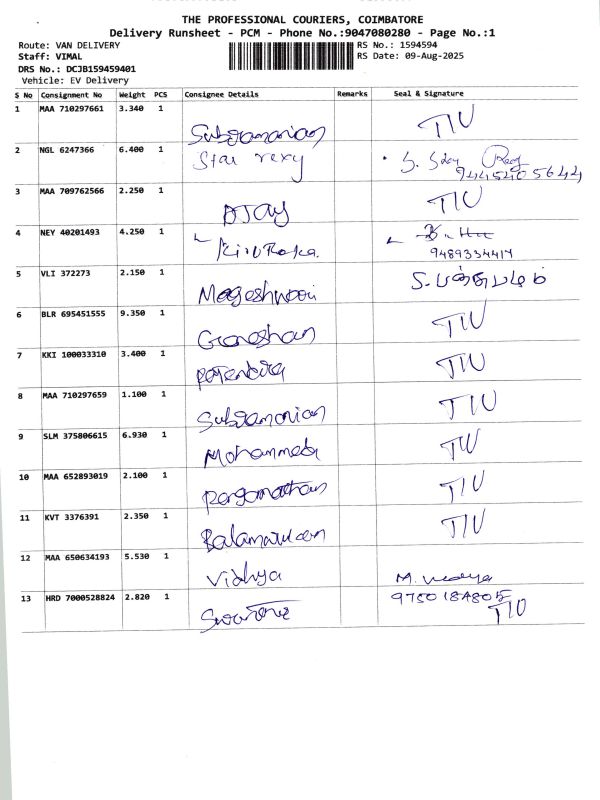 THE PROFESSIONAL COURIERS, COIMBATORE
Delivery Runsheet - PCM - Phone No.:9047080280 - Page No.:1
Route: VAN DELIVERY
RS No.: 1594594
Staff: VIMAL
RS Date: 09-Aug-2025
DRS No.: DCJB159459401
Vehicle: EV Delivery
S No Consignment No Weight PCS Consignee Details Remarks Seal & Signature
1 MAA 710297661 3.340 1 Subramanian TIU
2 NGL 6247366 6.400 1 Star rexy
9445405644
3 MAA 709762566 2.250 1 AJay TIU
4 NEY 40201493 4.250 1
9489334414
5 VLI 372273 2.150 1 Mageshwari
6 BLR 695451555 9.350 1 Ganeshan TIU
7 KKI 100033310 3.400 1 TIU
8 MAA 710297659 1.100 1 Subramanian TIU
9 SLM 375806615 6.930 1 Mohammed TIU
10 MAA 652893019 2.100 1 TIU
11 KVT 3376391 2.350 1 TIU
12 MAA 650634193 5.530 1 Vidhya M. Vidhya
13 HRD 7000528824 2.820 1 TIU